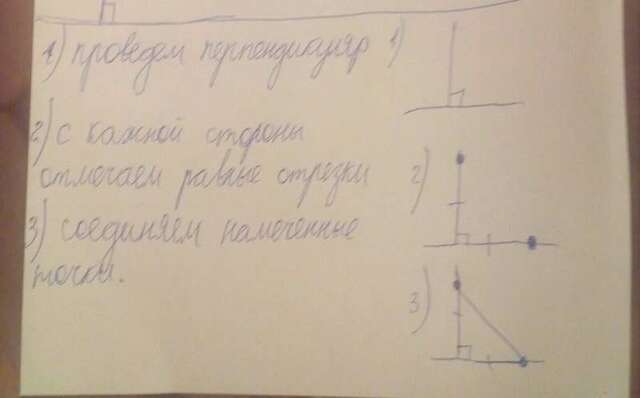 1) проведем перпендикуляр 1)
2) с кажной стороны
отмечаем равные отрезки 2)
3) соединяем намеченные
точки. 3)